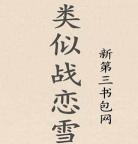 类似战恋雪
新第三书包网